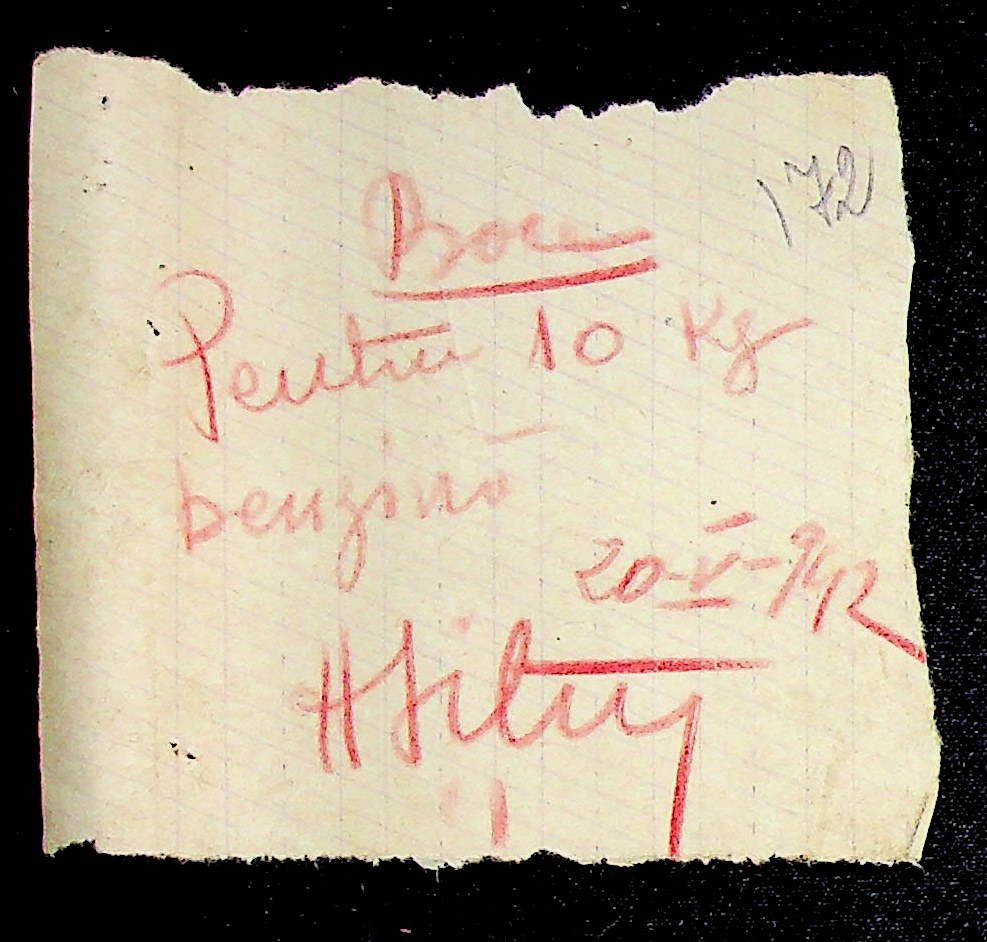 172
Bon
Pentru 10 Kg
benzină
20-V-942